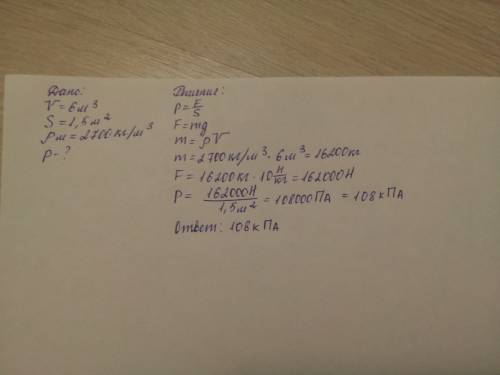 Дано:
V = 6 м³
S = 1,5 м²
ρм = 2700 кг/м³
p - ?
Решение:
p = F/S
F = mg
m = ρV
m = 2700 кг/м³ · 6 м³ = 16200 кг
F = 16200 кг · 10 Н/кг = 162000 Н
P = 162000 Н / 1,5 м² = 108000 Па = 108 кПа
Ответ: 108 кПа